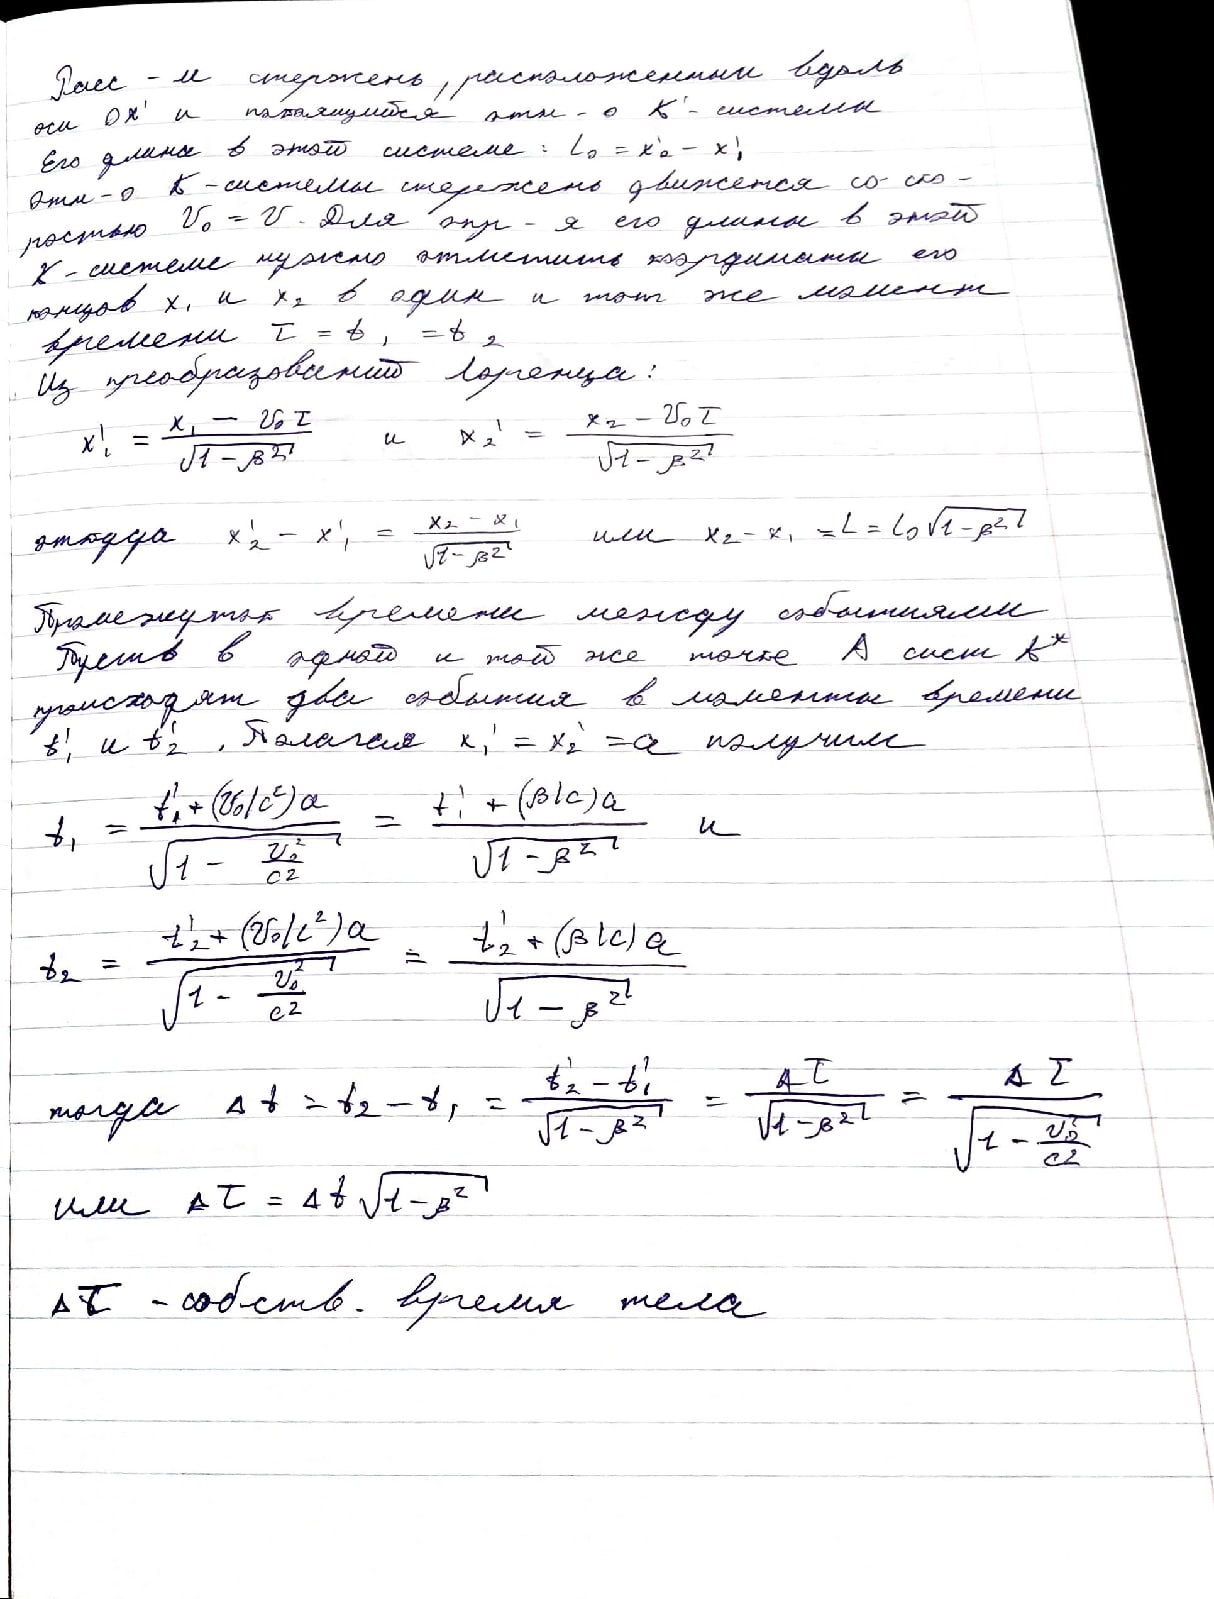 Расс-м стержень, расположенный вдоль
оси OX' и покоящийся отн-о K'-системы
Его длина в этой системе: L₀ = x'₂ - x'₁
Отн-о K-системы стержень движется со ско-
ростью V₀ = V. Для опр-я его длины в этой
K-системе нужно отметить координаты его
концов x₁ и x₂ в один и тот же момент
времени τ = t₁ = t₂
Из преобразований Лоренца:
x'₁ = (x₁ - V₀τ)/√(1-β²) и x₂' = (x₂ - V₀τ)/√(1-β²)
откуда x'₂ - x'₁ = (x₂ - x₁)/√(1-β²) или x₂ - x₁ = L = L₀√(1-β²)
Промежуток времени между событиями
Пусть в одной и той же точке A сист K*
происходят два события в моменты времени
t'₁ и t'₂. Полагая x₁' = x₂' = a получим
t₁ = (t'₁ + (V₀/c²)a)/√(1 - V₀²/c²) = (t'₁ + (β/c)a)/√(1-β²) и
t₂ = (t'₂ + (V₀/c²)a)/√(1 - V₀²/c²) = (t'₂ + (β/c)a)/√(1-β²)
тогда Δt = t₂ - t₁ = (t'₂ - t'₁)/√(1-β²) = Δτ/√(1-β²) = Δτ/√(1 - V₀²/c²)
или Δτ = Δt√(1-β²)
Δτ - собств. время тела